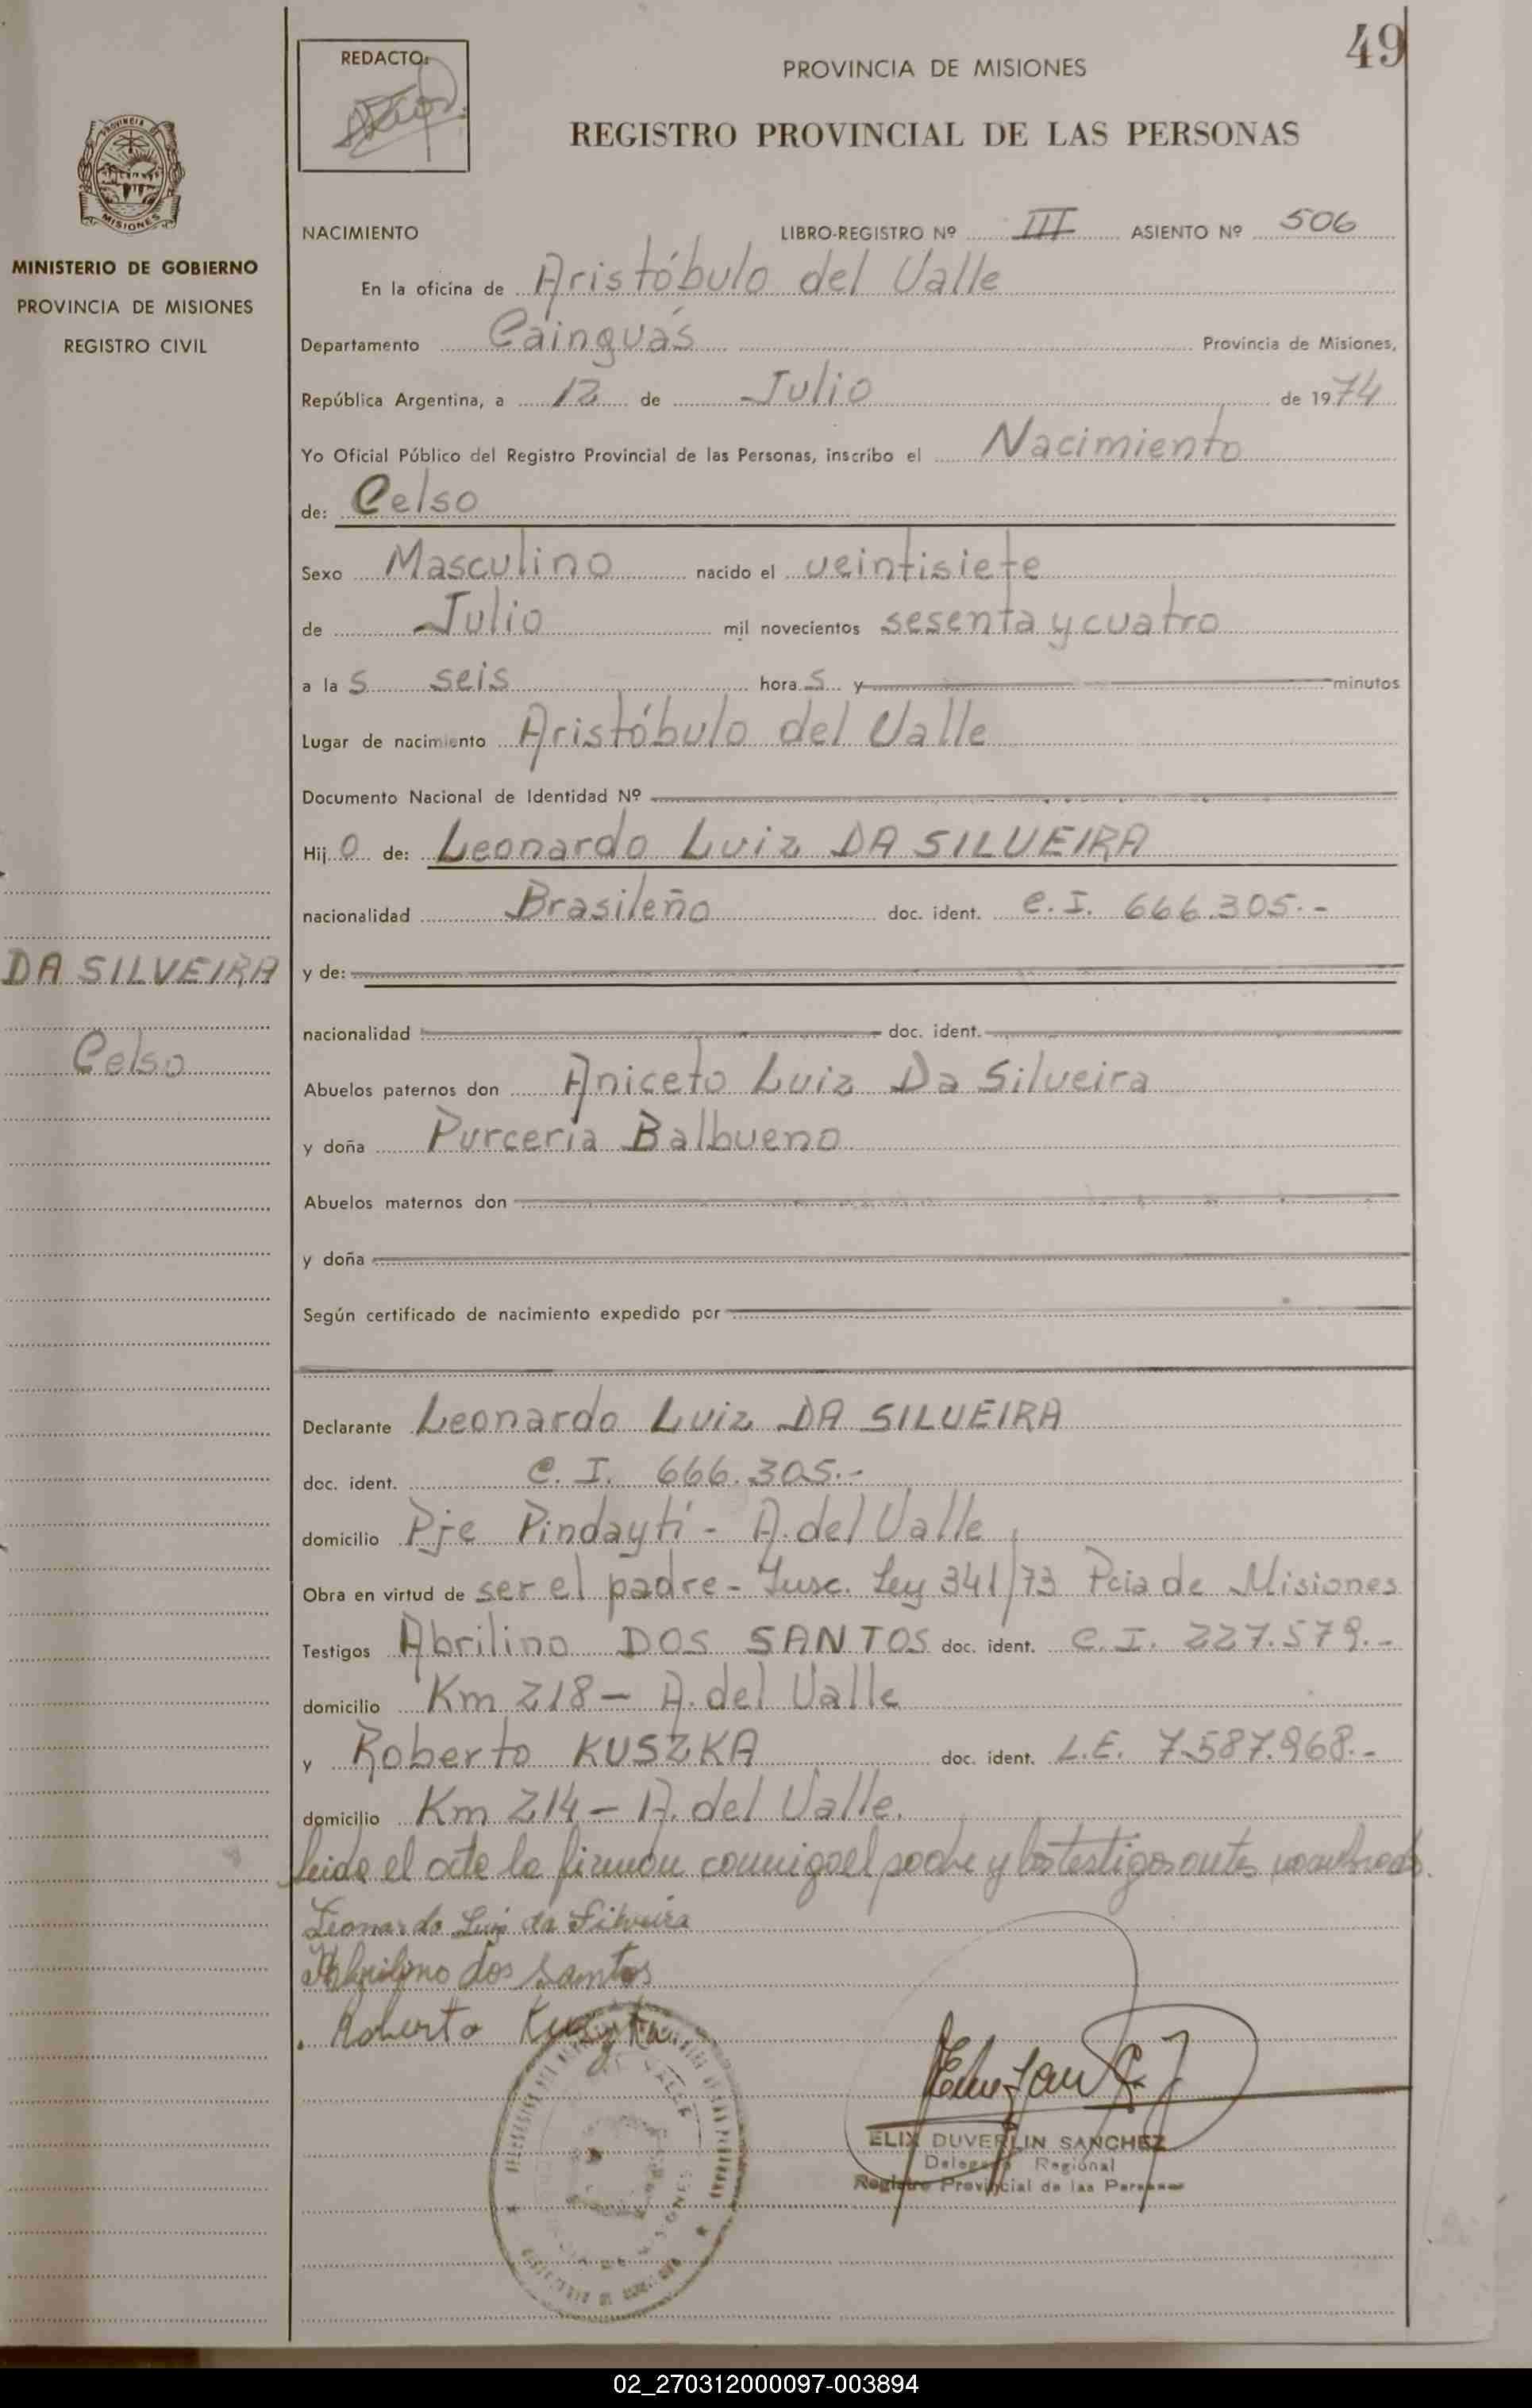 49
REDACTO:
PROVINCIA DE MISIONES
REGISTRO PROVINCIAL DE LAS PERSONAS
PROVINCIA
MISIONES
MINISTERIO DE GOBIERNO
PROVINCIA DE MISIONES
REGISTRO CIVIL
NACIMIENTO LIBRO-REGISTRO Nº III ASIENTO Nº 506
En la oficina de Aristóbulo del Valle
Departamento Cainguás Provincia de Misiones,
República Argentina, a 12 de Julio de 1974
Yo Oficial Público del Registro Provincial de las Personas, inscribo el Nacimiento
de: Celso
Sexo Masculino nacido el veintisiete
de Julio mil novecientos sesenta y cuatro
a las seis horas y minutos
Lugar de nacimiento Aristóbulo del Valle
Documento Nacional de Identidad Nº
Hijo de: Leonardo Luiz DA SILVEIRA
nacionalidad Brasileño doc. ident. C.I. 666.305.-
DA SILVEIRA
Celso
y de:
nacionalidad doc. ident.
Abuelos paternos don Aniceto Luiz Da Silveira
y doña Purceria Balbueno
Abuelos maternos don
y doña
Según certificado de nacimiento expedido por
Declarante Leonardo Luiz DA SILVEIRA
doc. ident. C.I. 666.305.-
domicilio Pje Pindaytí - A. del Valle
Obra en virtud de ser el padre - Insc. Ley 341/73 Pcia de Misiones
Testigos Abrilino DOS SANTOS doc. ident. C.I. 227.579.-
domicilio Km 218 - A. del Valle
y Roberto KUSZKA doc. ident. L.E. 7.587.968.-
domicilio Km 214 - A. del Valle.
Leida el acta la firman conmigo el padre y los testigos antes nombrados.
Leonardo Luiz da Silveira
Abrilino dos Santos
Roberto Kuszka
ELIX DUVERLIN SANCHEZ
Delegado Regional
Registro Provincial de las Personas
02_270312000097-003894